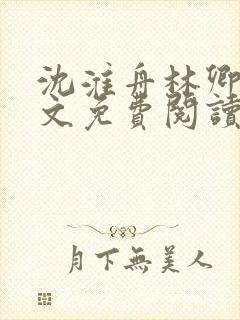 沈淮舟林卿
文免費閱讀
月下無美人